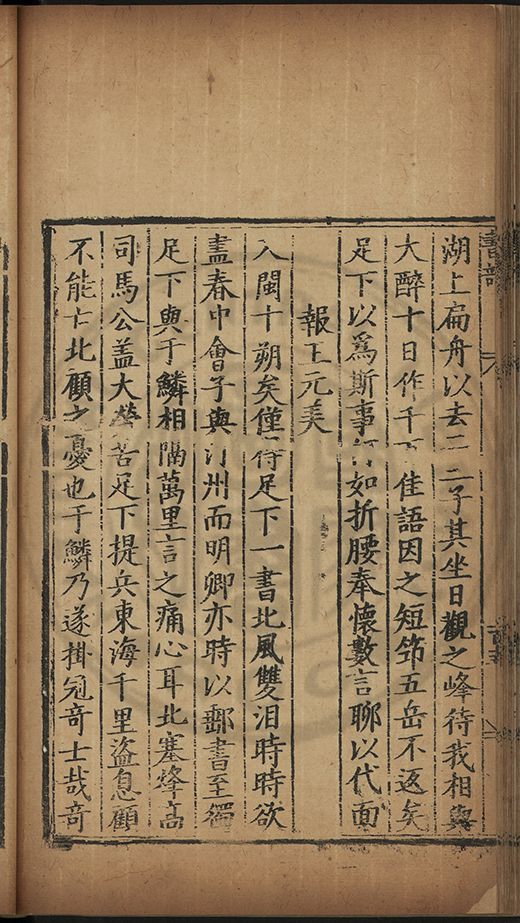 湖上扁舟以去二三子其坐日觀之峰待我相與
大醉十日作千百佳語因之短笻五岳不返矣
足下以爲斯事何如折腰奉懷數言聊以代面
報王元美
入閩十朔矣僅得足下一書北風雙泪時時欲
盡春中會子與汀州而明卿亦時以郵書至獨
足下與于鱗相隔萬里言之痛心耳北塞烽高
司馬公盖大勞苦足下提兵東海千里盜息顧
不能亡北顧之憂也于鱗乃遂掛冠竒士哉竒